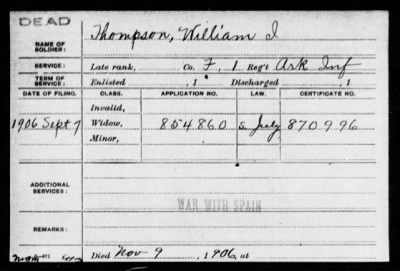 DEAD
NAME OF SOLDIER: Thompson, William I
SERVICE: Late rank, Co. F, 1 Reg't Ark Inf
TERM OF SERVICE: Enlisted , 1 Discharged , 1
DATE OF FILING. CLASS. APPLICATION NO. LAW. CERTIFICATE NO.
Invalid,
1906 Sept 7 Widow, 854860 S. July 870996
Minor,
ADDITIONAL SERVICES:
WAR WITH SPAIN
REMARKS:
Died Nov 9, 1906, at